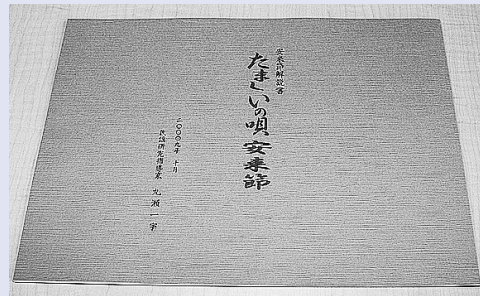 安来節解説書
たましいの唄 安来節
二〇〇九年 十月
民謡研究指導家 丸瀬一宇